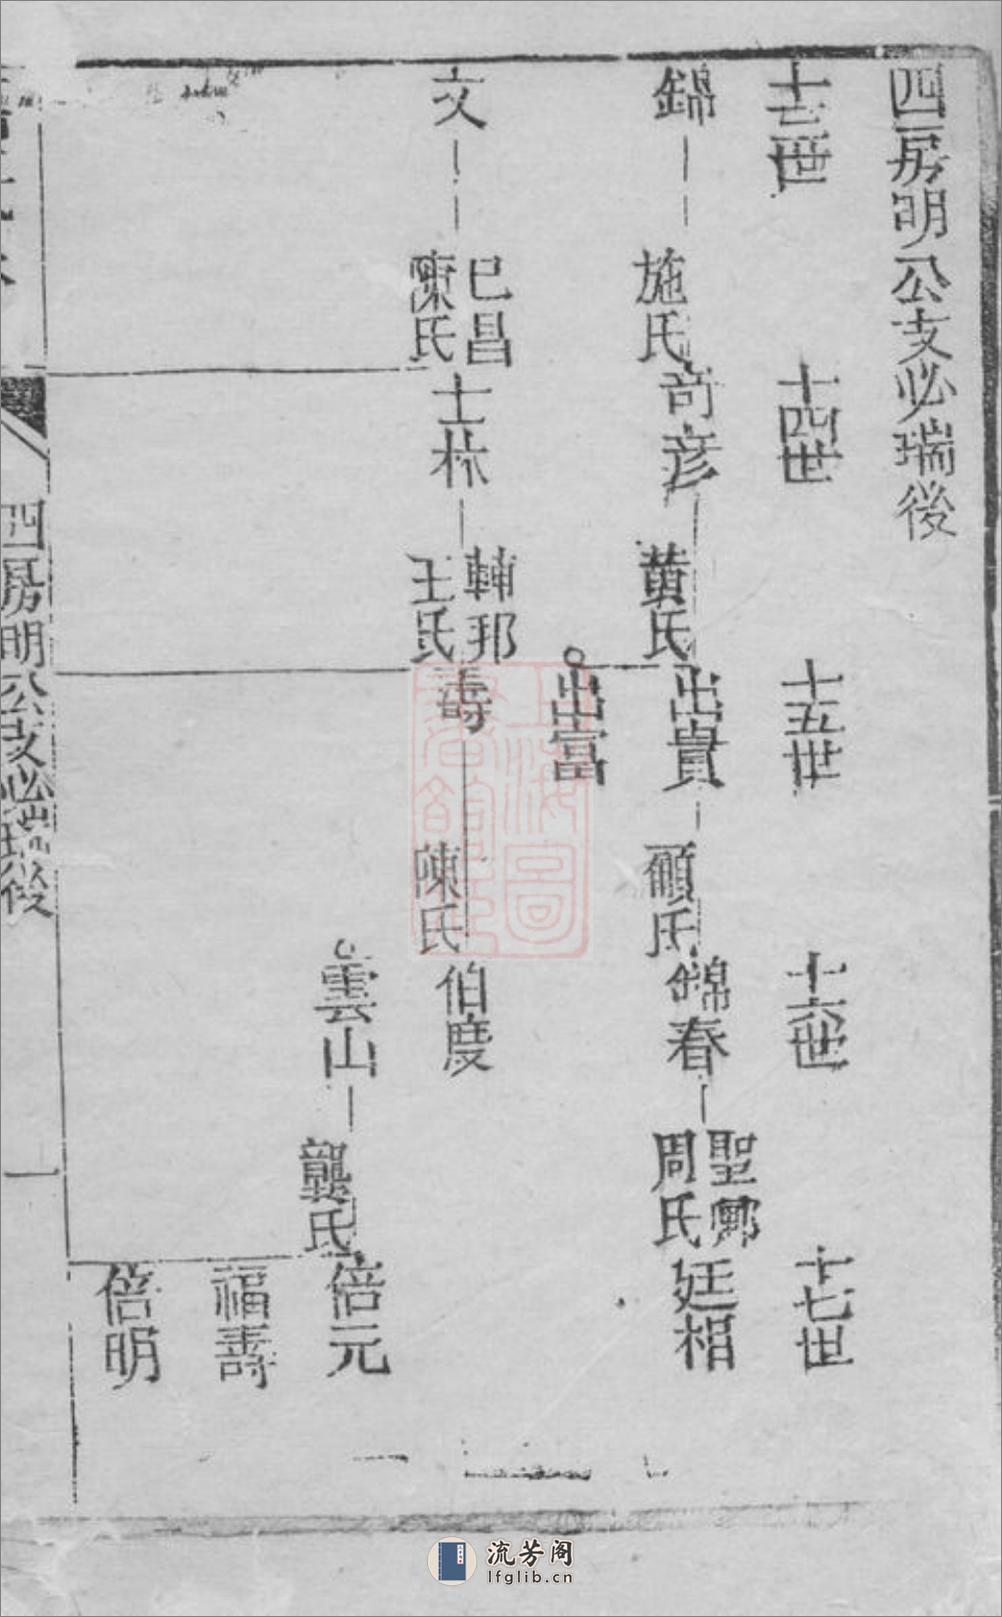 四房明公支必瑞後
十三世
十四世
十五世
十六世
十七世
錦
施氏
奇彥
黄氏
出貴
顧氏
錦春
聖鄉
周氏
廷相
出富
文
巳昌
陳氏
士林
輔邦
王氏
壽
陳氏
伯度
雲山
龔氏
倍元
福壽
倍明
四房明公支必瑞後
一
上海圖
書館藏
流芳阁
lfglib.cn